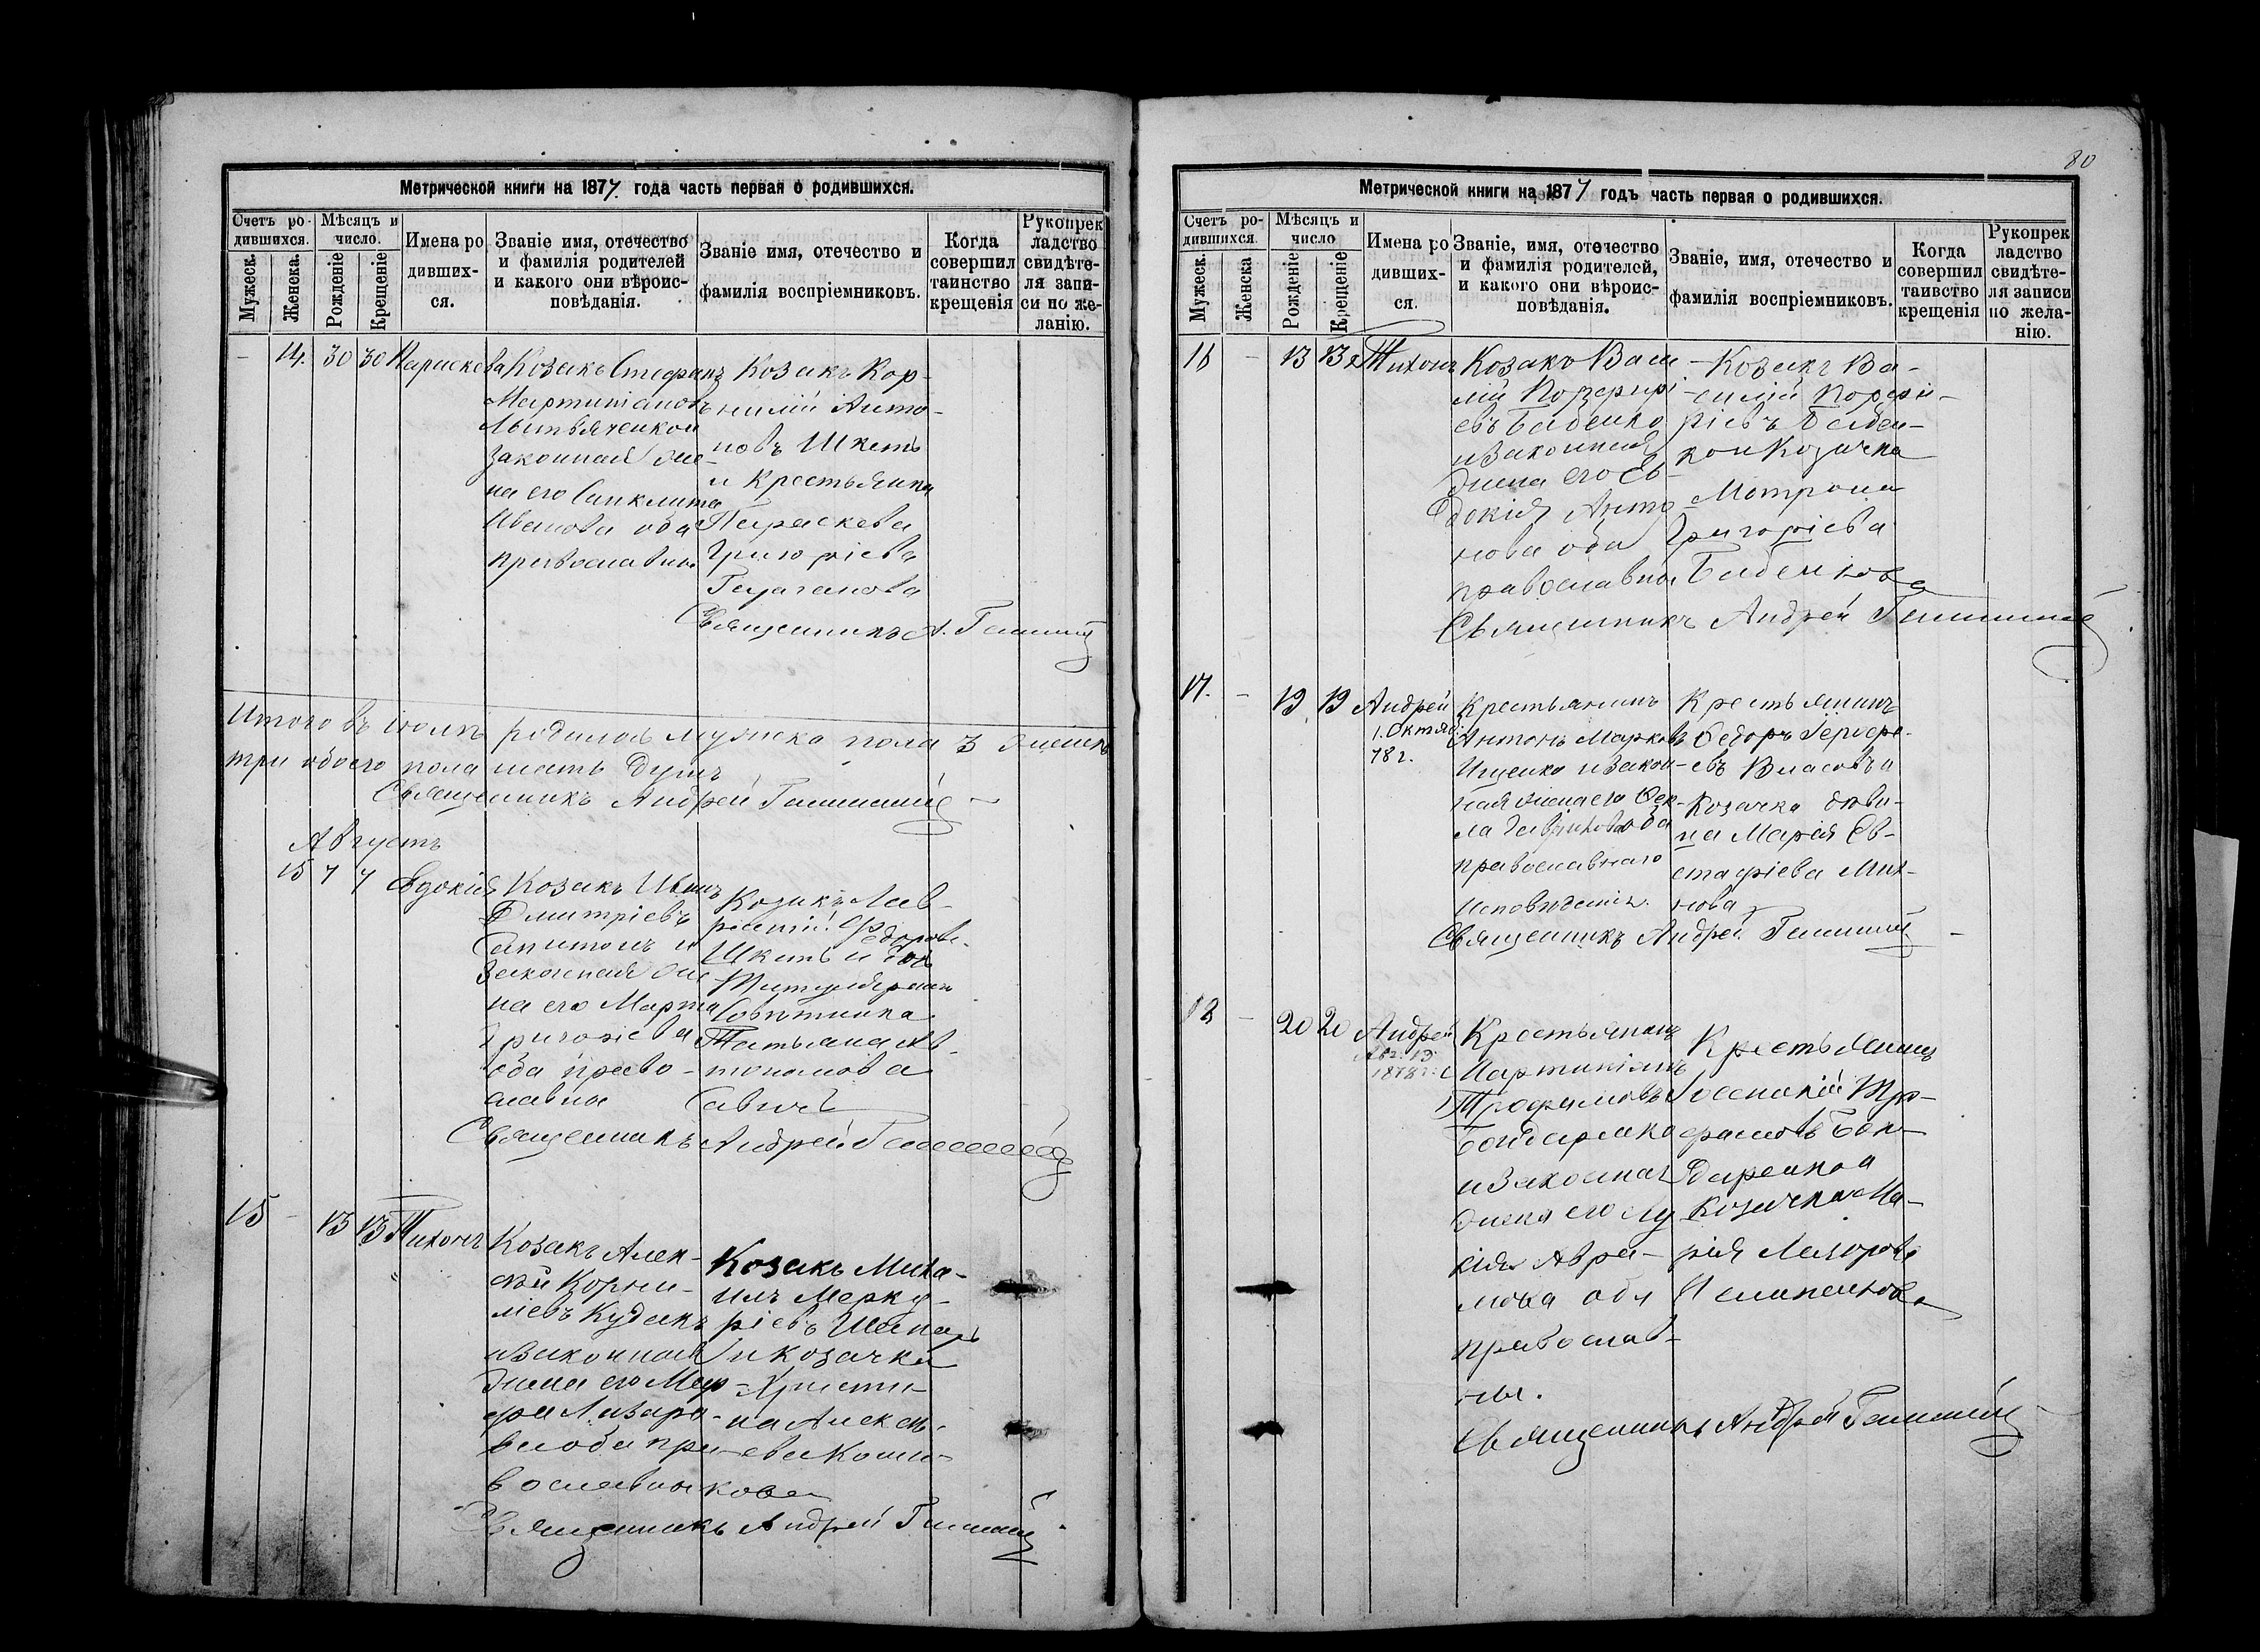 Метрической книги на 1877. года часть первая о родившихся.
Счетъ ро-
дившихся.
Мѣсяцъ и
число.
Мужеск.
Женска.
Рожденіе
Крещеніе
Имена ро
дивших-
ся.
Званіе имя, отечество
и фамилія родителей
и какого они вѣроис-
повѣданія.
Званіе имя, отечество и
фамилія воспріемниковъ.
Когда
совершил
таинство
крещенія
Рукопрек
ладство
свидѣте-
ля запи-
си по же-
ланію.
– 14. 30 30 Параскева
Козакъ Стефанъ
Мартиніановъ
законная же-
на его Синклита
Иванова оба
православные
Козакъ Кор-
нилій Анто-
новъ Шкеть
и крестьянка
Параскева
Григоріева
Священникъ А.
Итого въ іюлѣ родилось мужска пола 3 женска
три обоего пола шесть душъ
Священникъ Андрей
Августъ
15 7 7 Евдокія
Козакъ Иванъ
Дмитріевъ
законная же-
на его Марта
Григоріева
оба право-
славные
Козакъ Лав-
рентій Федоровъ
Шкеть и дочь
Совѣтника
Татьяна Ав-
тономова
Савичъ
Священникъ Андрей
15 – 13 13 Тихонъ
Козакъ Алек-
сѣй Корни-
ліевъ Кудакъ
и законная
жена его Мар-
фа Лазаре-
ва оба пра-
вославные
Козакъ Миха-
илъ Мерку-
ріевъ
и козачка
Христи-
на Алексѣ-
ева
кова
Священникъ Андрей
80
Метрической книги на 1877 годъ часть первая о родившихся.
Счетъ ро-
дившихся.
Мѣсяцъ и
число
Мужеск.
Женска
Рожденіе
Крещеніе
Имена ро
дивших-
ся.
Званіе, имя, отечество
и фамилія родителей,
и какого они вѣроис-
повѣданія.
Званіе, имя, отечество и
фамилія воспріемниковъ.
Когда
совершил
таивство
крещенія
Рукопрек
ладство
свидѣте-
ля записи
по жела-
нію.
16 – 13 13 Тихонъ
Козакъ Васи
лій Порфирі
евъ Бабенко
и законная
жена его Ев-
докія Анто-
нова оба
православные
Козакъ Ва-
силій Порфи-
ріевъ Бабен-
ко и Козачка
Мотрона
Григоріева
Бабенкова
Священникъ Андрей
17. – 19 19 Андрей
1. Октяб:
78 г.
Крестьянинъ
Антонъ Марковъ
Ищенко и закон-
ная жена его Фек-
ла оба
православнаго
исповѣданія.
Крестьянинъ
Федоръ
евъ Власовъ и
Козачка дѣви-
ца Марія Ев-
стафіева Мих-
нова
Священникъ Андрей
18 – 20 20 Андрей
Авг. 19
1878 г.
Крестьянинъ
Мартиніанъ
Трофимовъ
Бондаренко
и законная
жена его Лу
кія Авра-
мова оба
православ-
ны.
Крестьянинъ
Тро-
фимовъ Бон-
даренко и
козачка Ма-
рія Лазорова
Священникъ Андрей